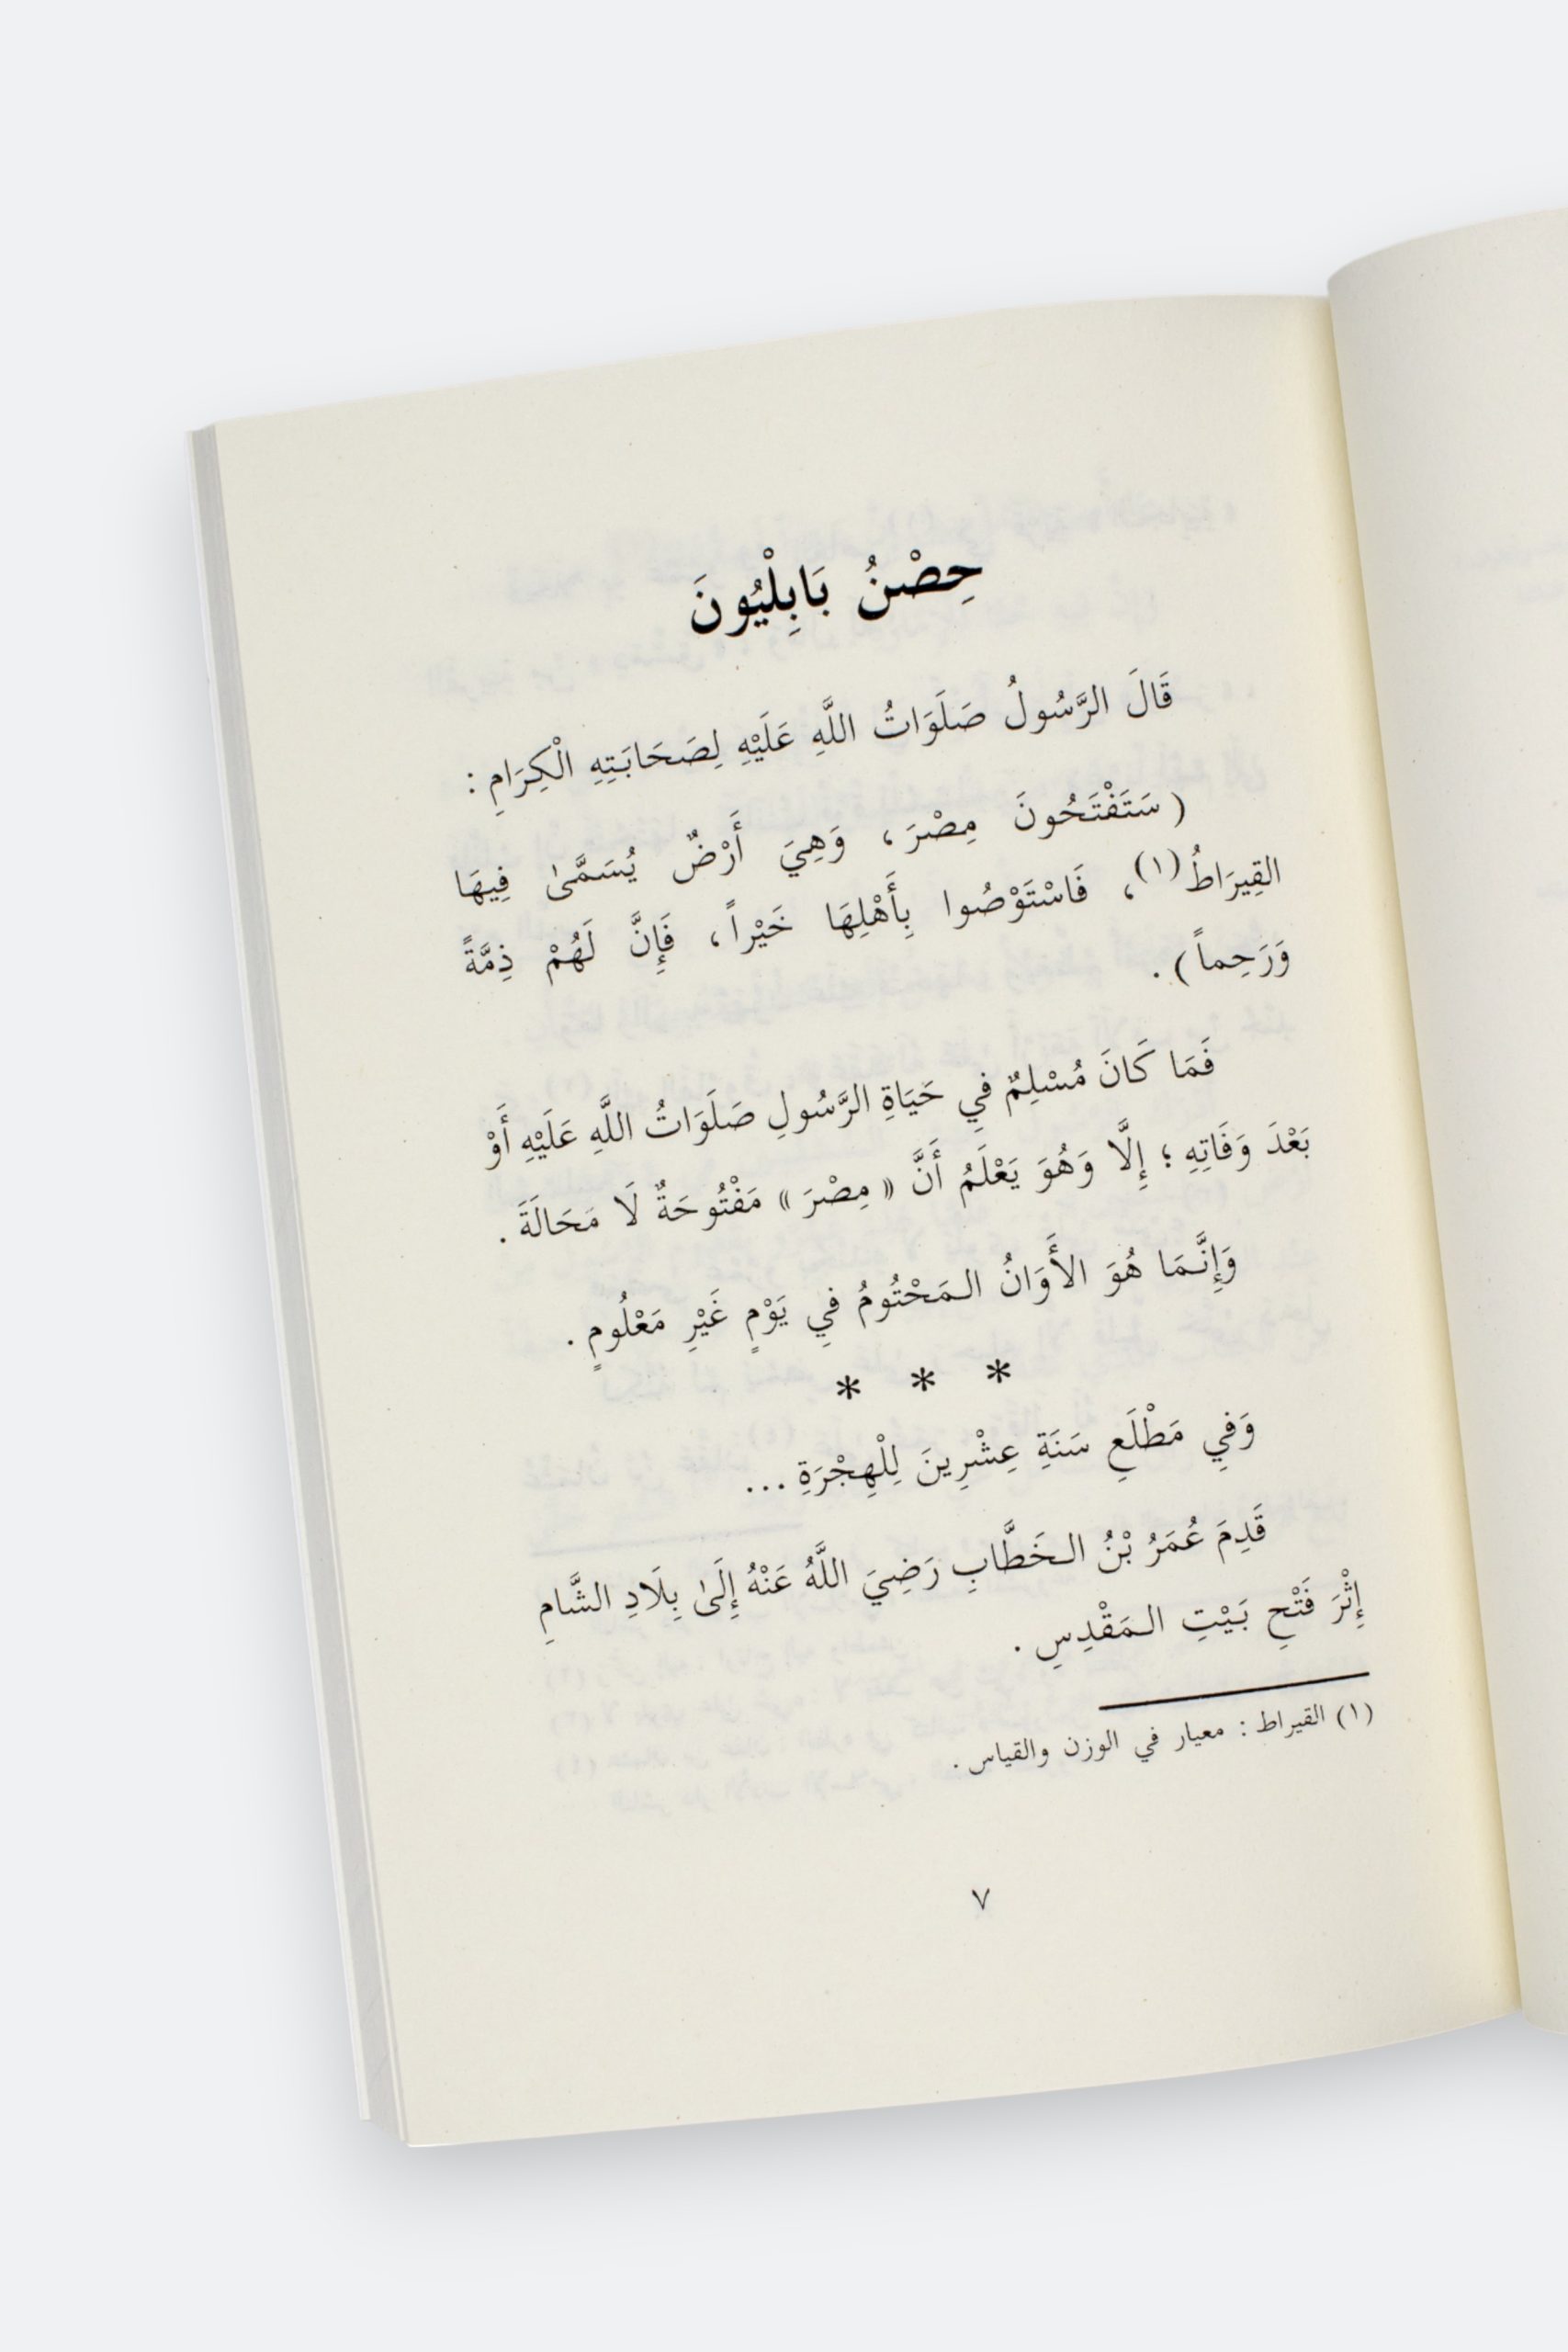 حِصْنُ بَابِلْيُونَ
قَالَ الرَّسُولُ صَلَوَاتُ اللَّهِ عَلَيْهِ لِصَحَابَتِهِ الْكِرَامِ :
( سَتَفْتَحُونَ مِصْرَ ، وَهِيَ أَرْضٌ يُسَمَّىٰ فِيهَا
القِيرَاطُ(١)، فَاسْتَوْصُوا بِأَهْلِهَا خَيْراً ، فَإِنَّ لَهُمْ ذِمَّةً
وَرَحِماً ) .
فَمَا كَانَ مُسْلِمٌ فِي حَيَاةِ الرَّسُولِ صَلَوَاتُ اللَّهِ عَلَيْهِ أَوْ
بَعْدَ وَفَاتِهِ ؛ إِلَّا وَهُوَ يَعْلَمُ أَنَّ « مِصْرَ » مَفْتُوحَةٌ لَا مَحَالَةَ .
وَإِنَّـمَا هُوَ الأَوَانُ الـمَحْتُومُ فِي يَوْمٍ غَيْرِ مَعْلُومٍ .
* * *
وَفِي مَطْلَعِ سَنَةِ عِشْرِينَ لِلْهِجْرَةِ ...
قَدِمَ عُمَرُ بْنُ الـخَطَّابِ رَضِيَ اللَّهُ عَنْهُ إِلَىٰ بِلَادِ الشَّامِ
إِثْرَ فَتْحِ بَيْتِ الـمَقْدِسِ .
(١) القيراط : معيار في الوزن والقياس .
٧